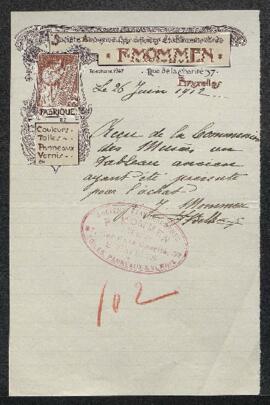 Société Anonyme des anciens Établissements
F. MOMMEN
Telephone 1947
Rue de la Charité 37
Bruxelles
FABRIQUE
DE
Couleurs
Toiles
Panneaux
Vernis
Le 26 Juin 1912
Reçu de la Commission
des Musées un
Tableau ancien
ayant été présenté
pour l'achat
F. Mommen
F. MOMMEN
TOILES, PANNEAUX & VERNIS
102